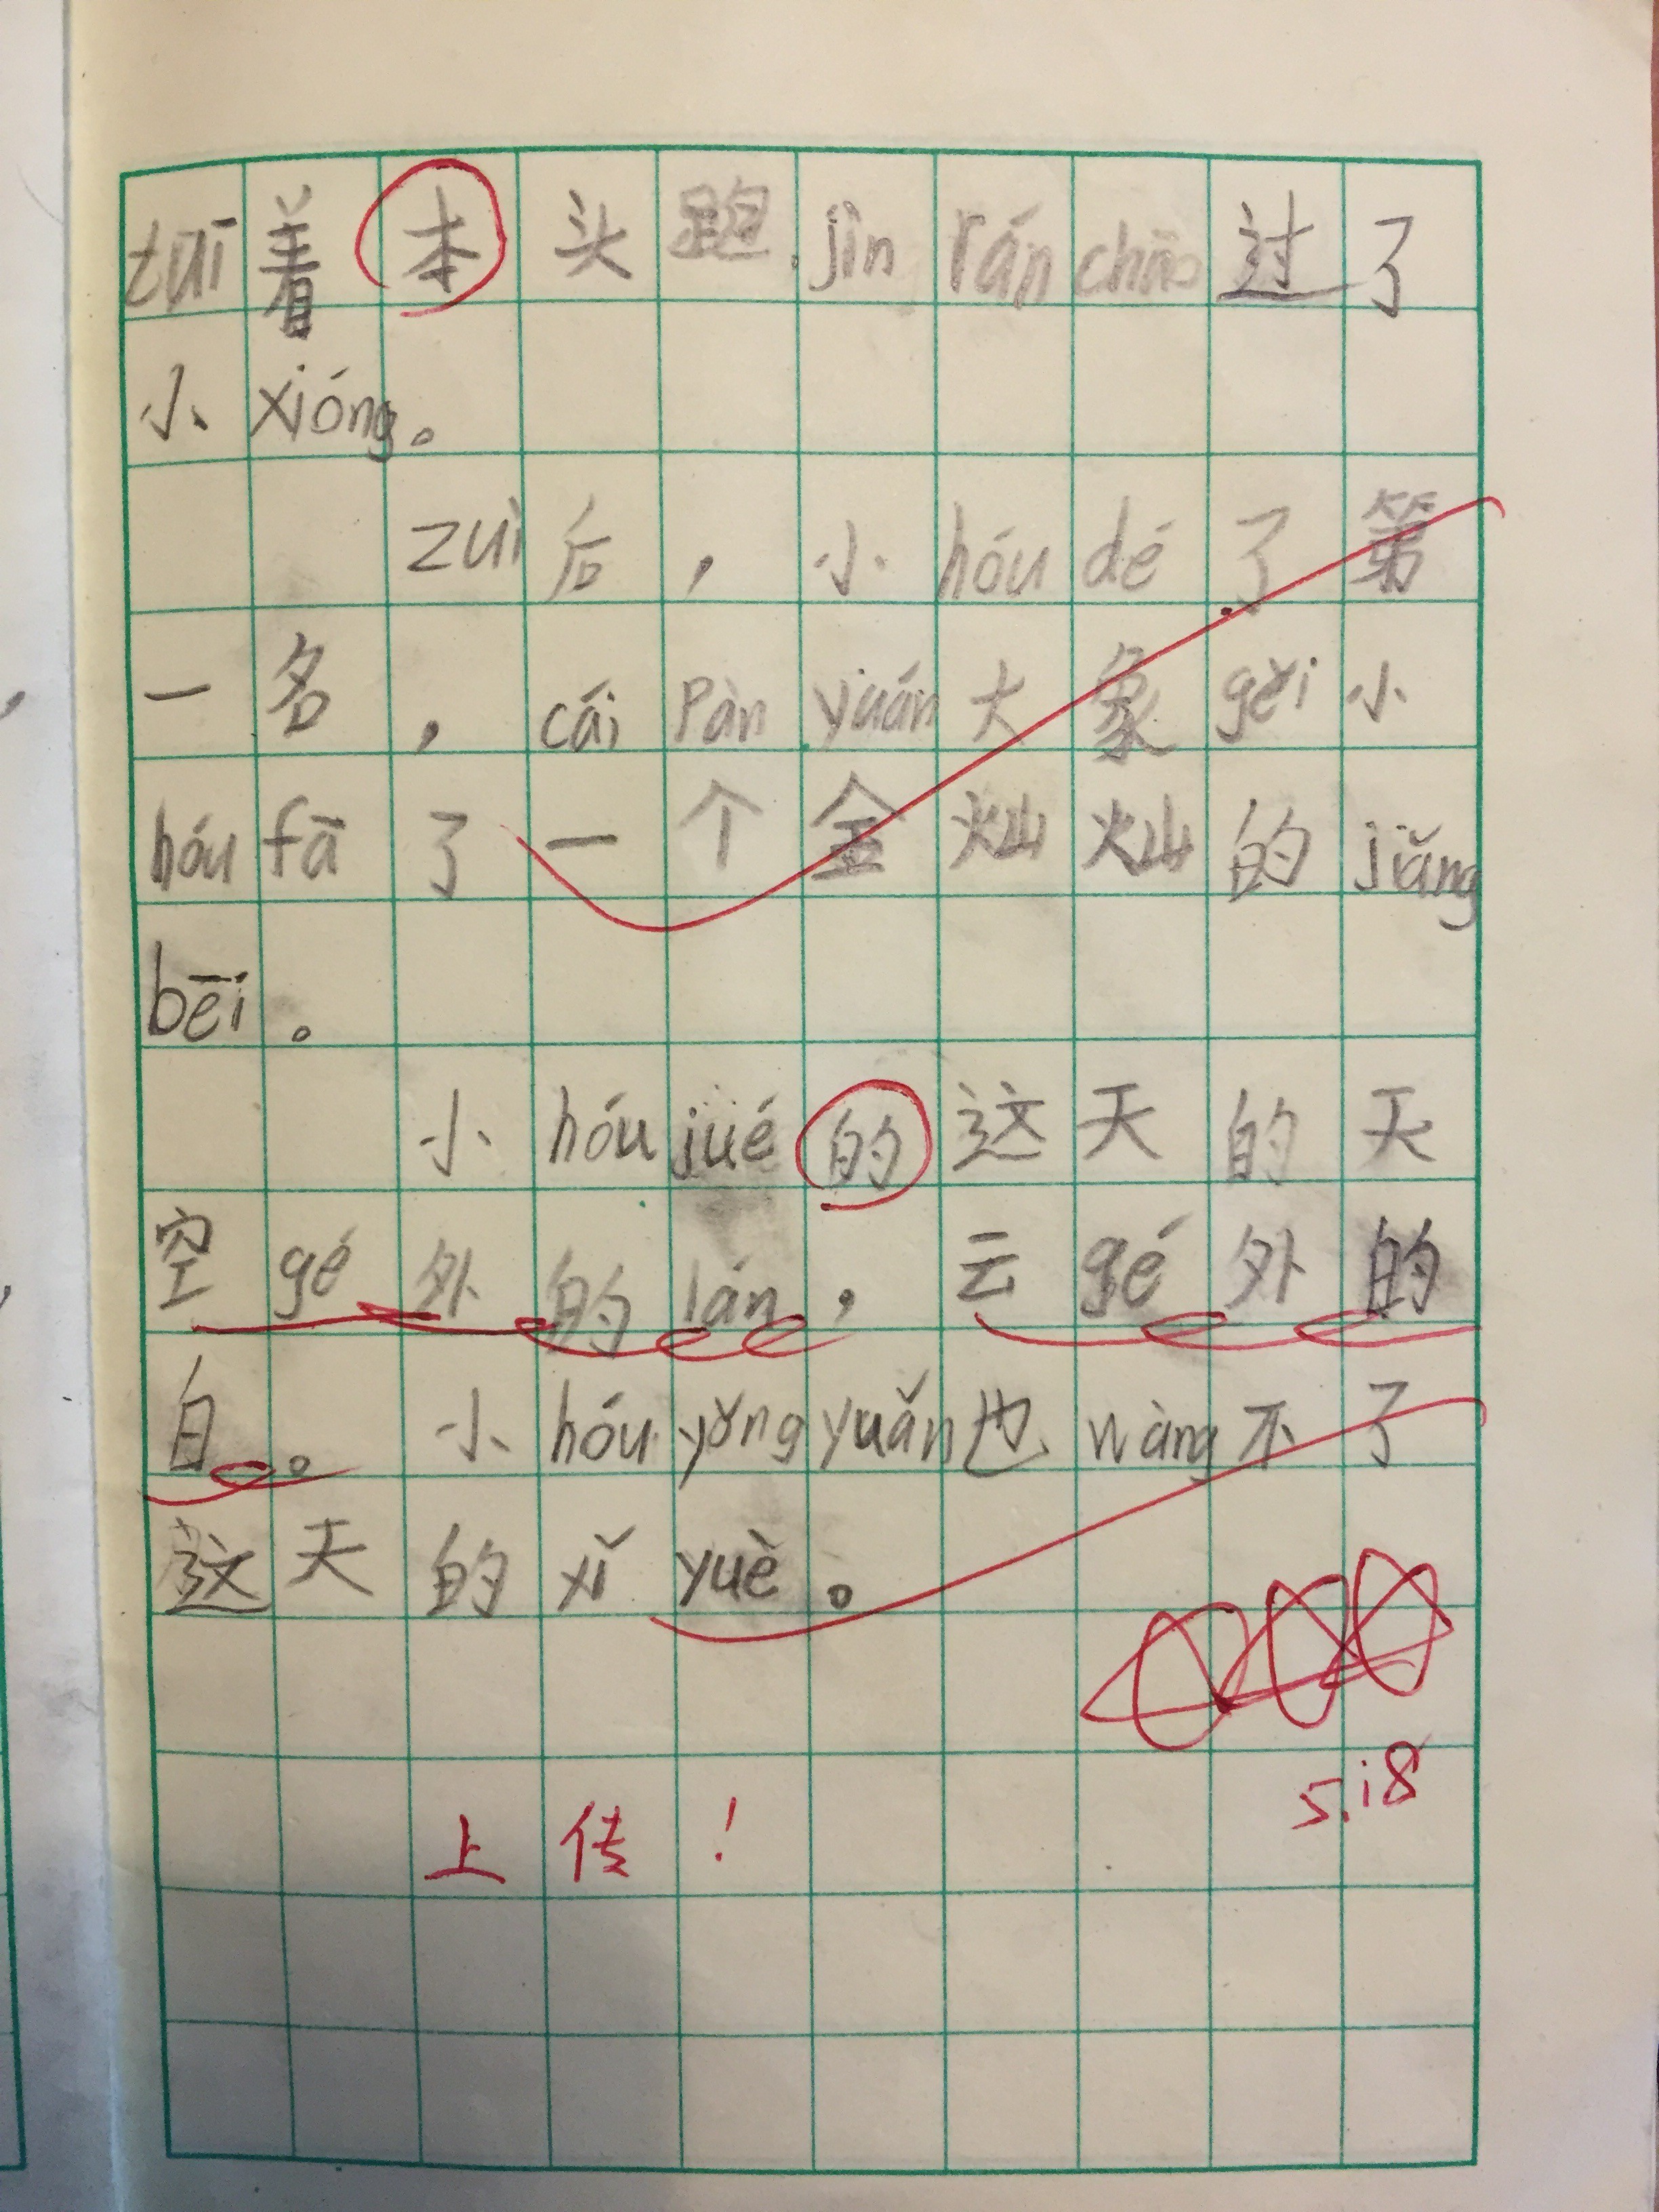 tuī着本头跑，jìn rán chāo过了
小xióng。
zuì后，小hóu dé了第
一名，cái Pàn yuán大象gěi小
hóu fā了一个金灿灿的jiǎng
bēi。
小hóu jué的这天的天
空gé外的lán，云gé外的
白。小hóu yǒng yuǎn也wàng不了
这天的xǐ yuè。
5.18
上传！